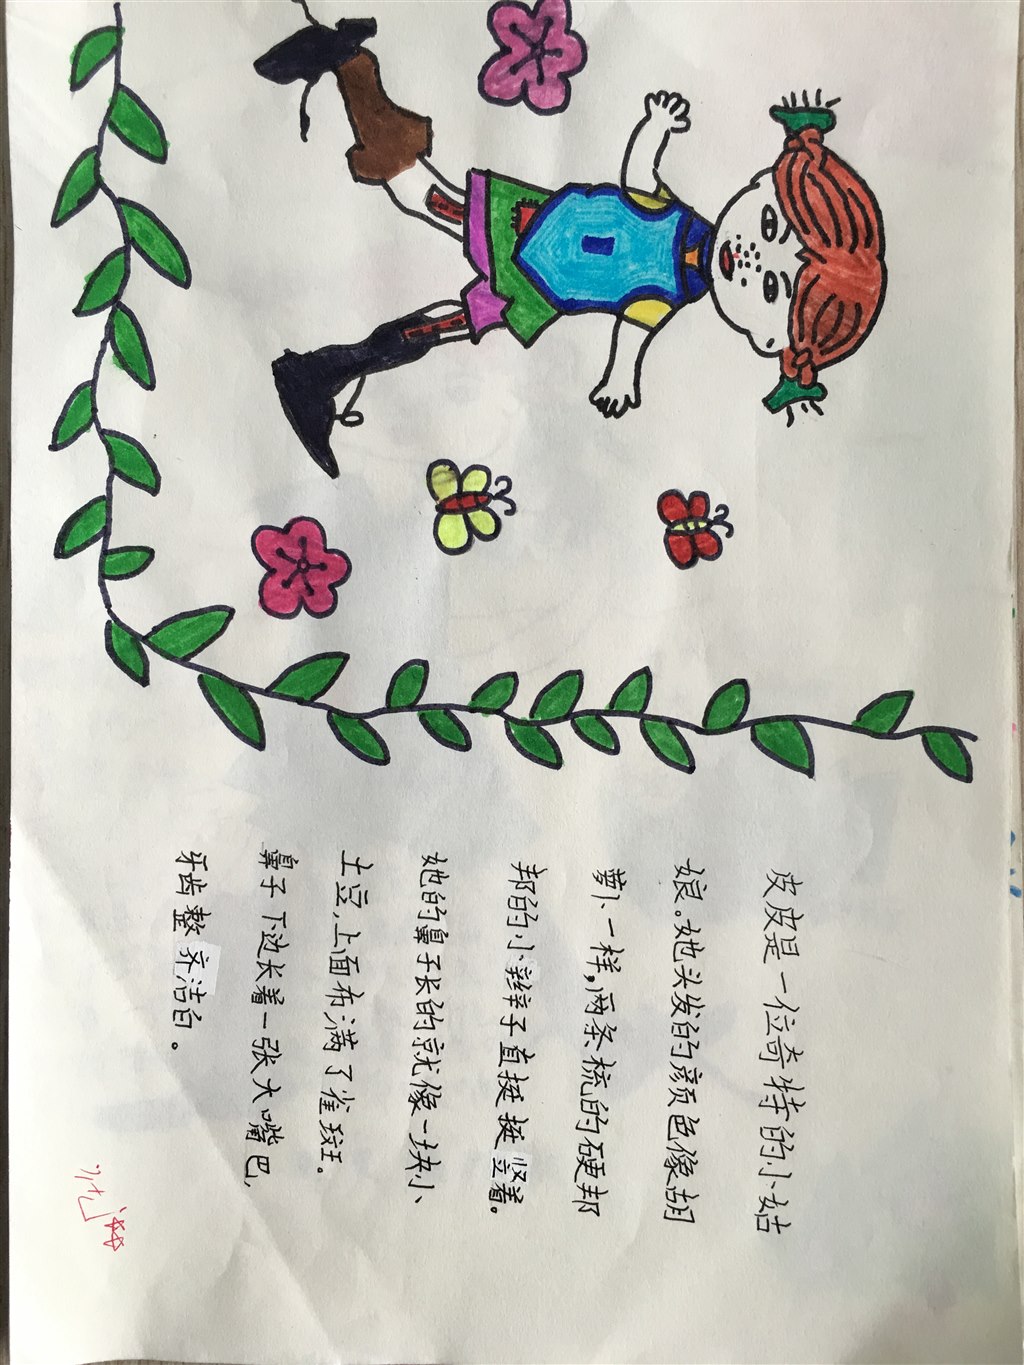 皮皮是一位奇特的小姑
娘。她头发的颜色像胡
萝卜一样，两条梳的硬邦
邦的小辫子直挺挺竖着。
她的鼻子长的就像一块小
土豆，上面布满了雀斑。
鼻子下边长着一张大嘴巴，
牙齿整齐洁白。